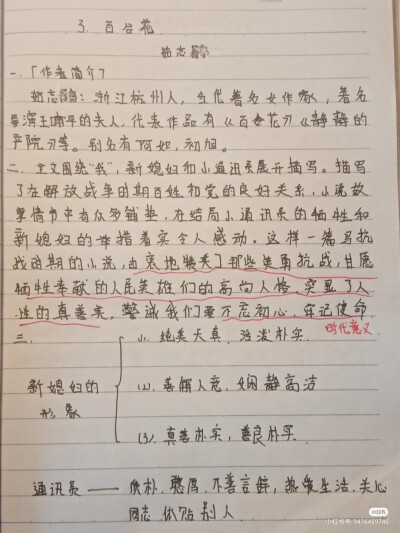 3. 百合花
茹志鹃
一.「作者简介」
茹志鹃:浙江杭州人,当代著名女作家,著名
导演王啸平的夫人,代表作品有《百合花》《静静的
产院》等。别名有阿如,初旭。
二.全文围绕"我",新媳妇和小通讯员展开描写。描写
了在解放战争时期百姓和党的良好关系,小说故
事情节中有众多铺垫,在结局小通讯员的牺牲和
新媳妇的举措着实令人感动。这样一篇写抗
战时期的小说,由衷地赞美了那些英勇抗战,甘愿
牺牲奉献的人民英雄们的高尚人格,突显了人
性的真善美,警诫我们要不忘初心,牢记使命.
时代意义
三.
(1). 绝美天真,活泼朴实.
新媳妇的
形象
(2). 善解人意,娴静高洁
(3). 真善朴实,善良朴实.
通讯员——质朴,憨厚,不善言辞,热爱生活,关心
同志,体贴别人.
小红书号:9476459746